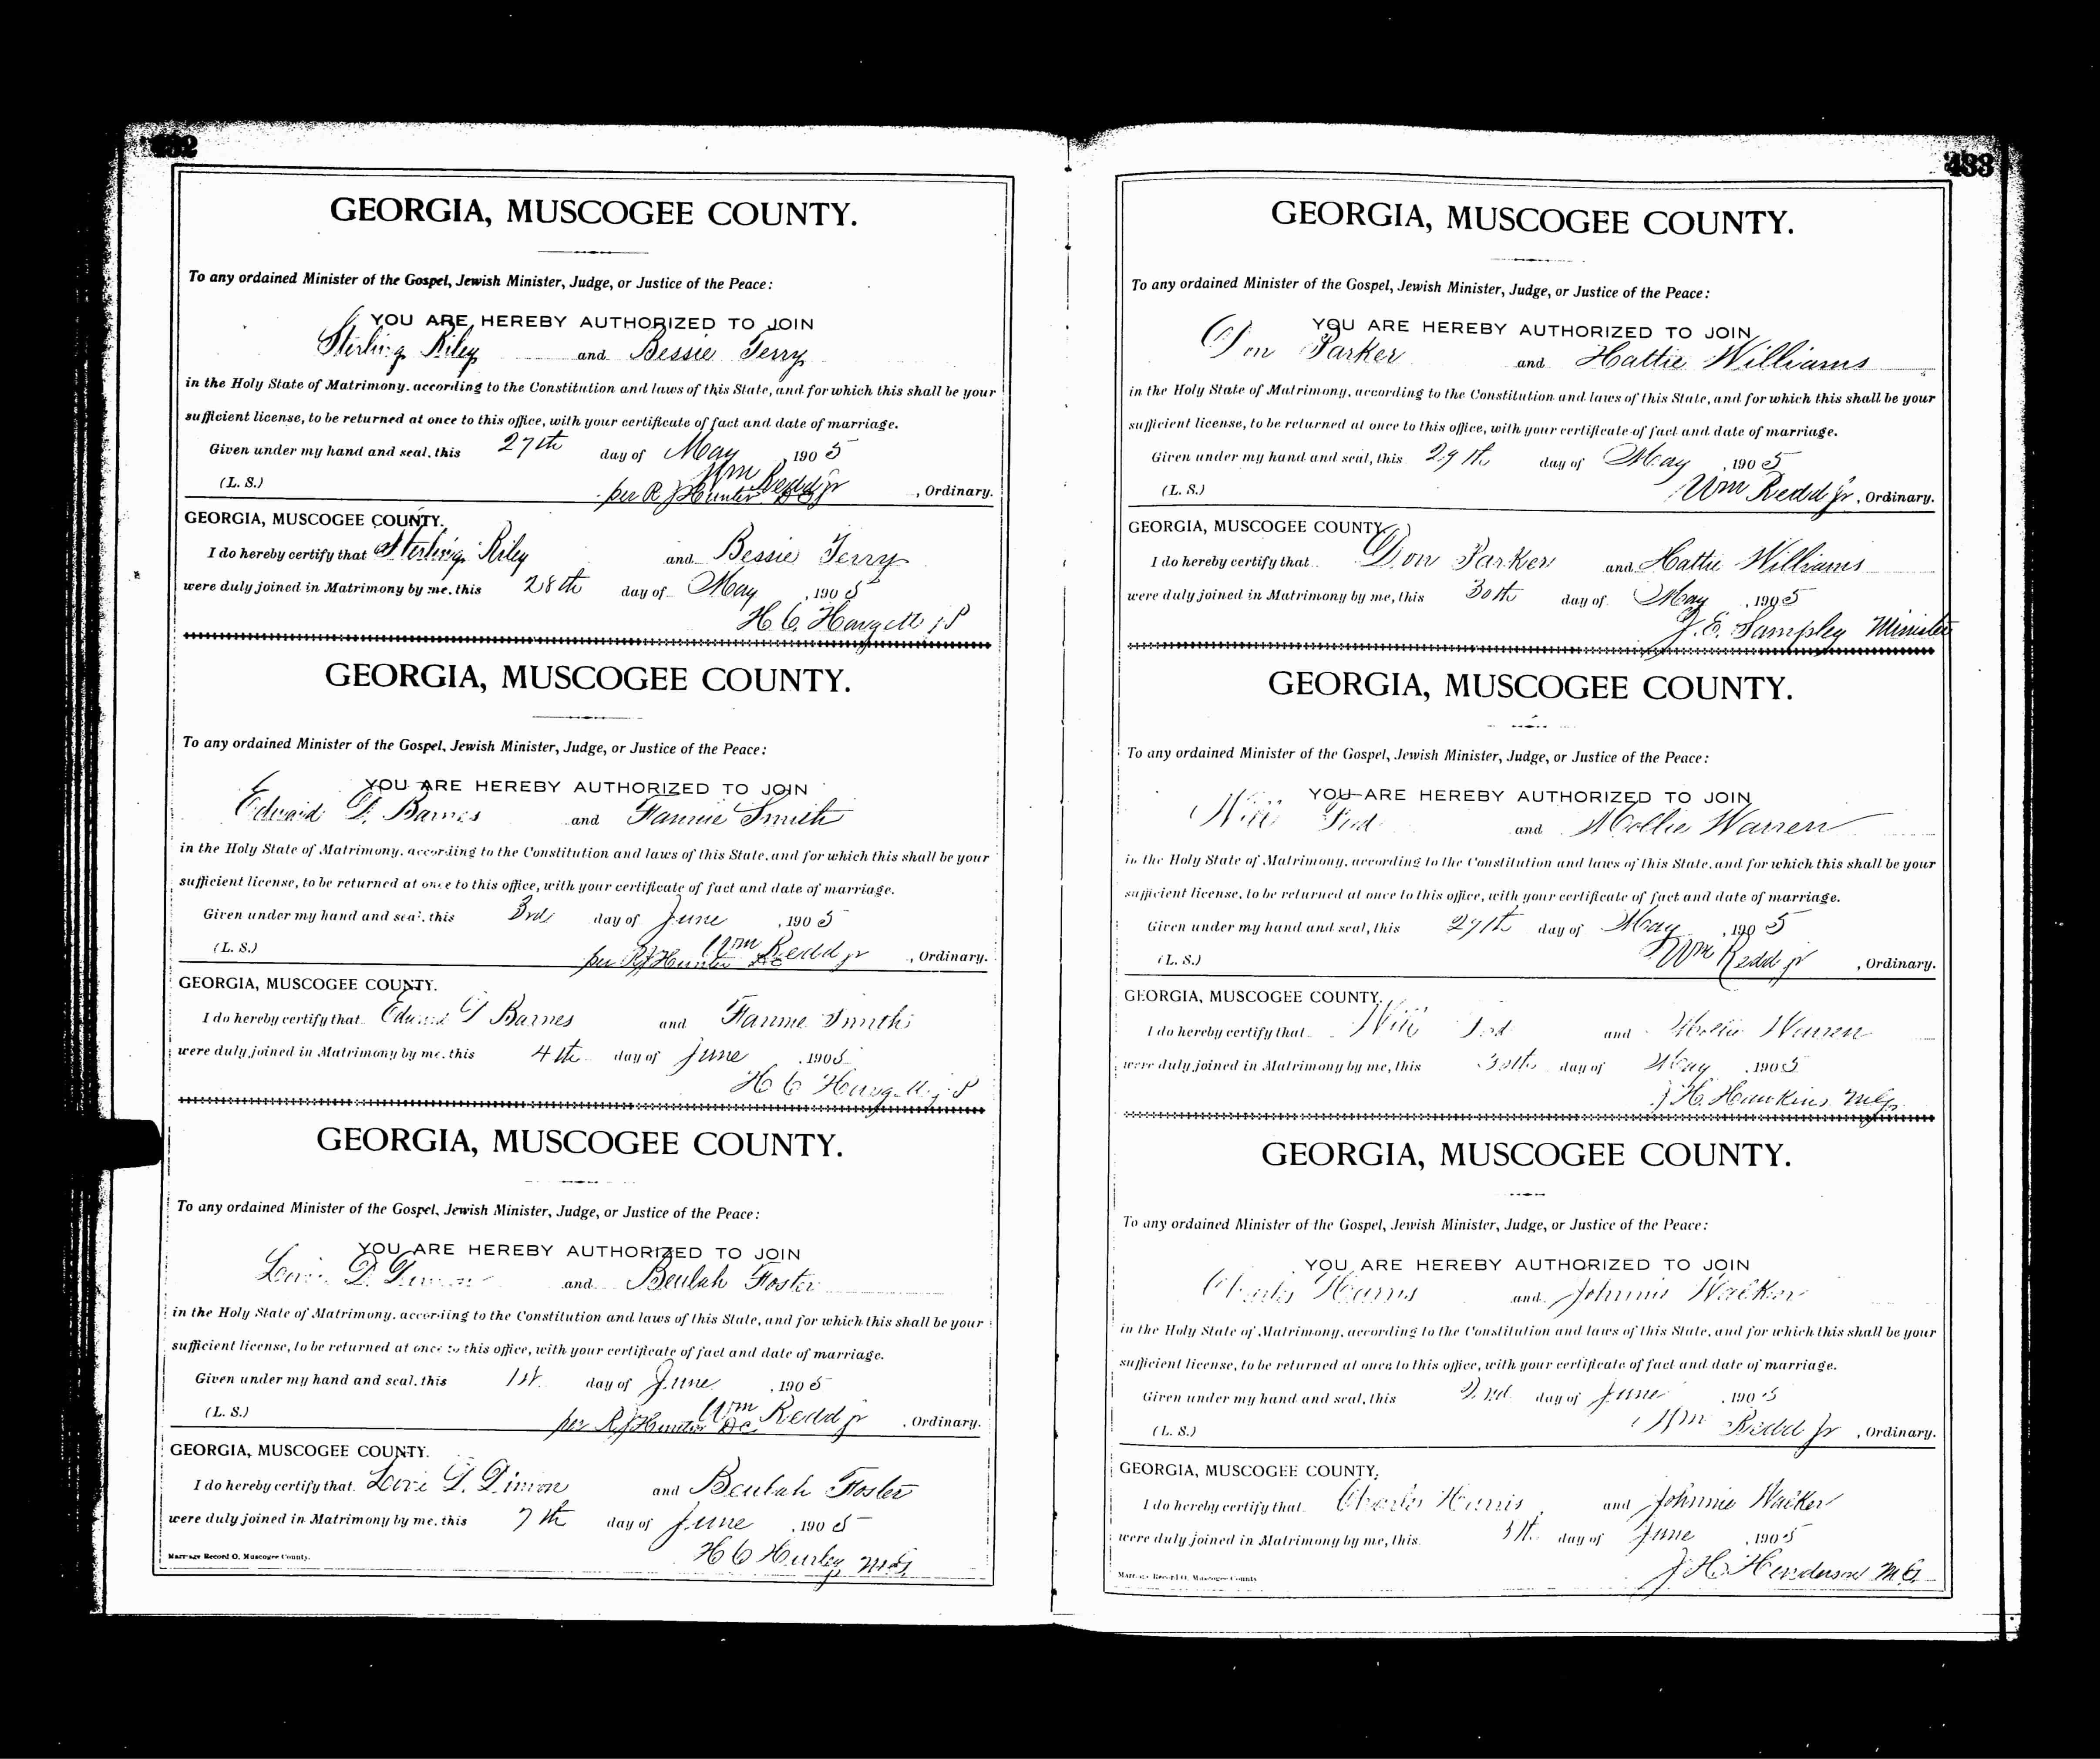 GEORGIA, MUSCOGEE COUNTY.
To any ordained Minister of the Gospel, Jewish Minister, Judge, or Justice of the Peace:
YOU ARE HEREBY AUTHORIZED TO JOIN
Sterling Riley and Bessie Terry
in the Holy State of Matrimony, according to the Constitution and laws of this State, and for which this shall be your
sufficient license, to be returned at once to this office, with your certificate of fact and date of marriage.
Given under my hand and seal, this 27th day of May, 1905
Wm Redd jr
(L. S.) per R J Hunter DC, Ordinary.
GEORGIA, MUSCOGEE COUNTY.
I do hereby certify that Sterling Riley and Bessie Terry
were duly joined in Matrimony by me, this 28th day of May, 1905
H C Hargett JP
GEORGIA, MUSCOGEE COUNTY.
To any ordained Minister of the Gospel, Jewish Minister, Judge, or Justice of the Peace:
YOU ARE HEREBY AUTHORIZED TO JOIN
Edward Barnes and Fannie Smith
in the Holy State of Matrimony, according to the Constitution and laws of this State, and for which this shall be your
sufficient license, to be returned at once to this office, with your certificate of fact and date of marriage.
Given under my hand and seal, this 3rd day of June, 1905
Wm Redd jr
(L. S.) per R J Hunter DC, Ordinary.
GEORGIA, MUSCOGEE COUNTY.
I do hereby certify that Edward Barnes and Fannie Smith
were duly joined in Matrimony by me, this 4th day of June, 1905
H C Hargett JP
GEORGIA, MUSCOGEE COUNTY.
To any ordained Minister of the Gospel, Jewish Minister, Judge, or Justice of the Peace:
YOU ARE HEREBY AUTHORIZED TO JOIN
and Beulah Foster
in the Holy State of Matrimony, according to the Constitution and laws of this State, and for which this shall be your
sufficient license, to be returned at once to this office, with your certificate of fact and date of marriage.
Given under my hand and seal, this 1st day of June, 1905
Wm Redd jr
(L. S.) per R J Hunter DC, Ordinary.
GEORGIA, MUSCOGEE COUNTY.
I do hereby certify that and Beulah Foster
were duly joined in Matrimony by me, this 7th day of June, 1905
H C Hurley M.G.
Marriage Record O, Muscogee County.
433
GEORGIA, MUSCOGEE COUNTY.
To any ordained Minister of the Gospel, Jewish Minister, Judge, or Justice of the Peace:
YOU ARE HEREBY AUTHORIZED TO JOIN
Don Parker and Hattie Williams
in the Holy State of Matrimony, according to the Constitution and laws of this State, and for which this shall be your
sufficient license, to be returned at once to this office, with your certificate of fact and date of marriage.
Given under my hand and seal, this 29th day of May, 1905
(L. S.) Wm Redd jr, Ordinary.
GEORGIA, MUSCOGEE COUNTY.
I do hereby certify that Don Parker and Hattie Williams
were duly joined in Matrimony by me, this 30th day of May, 1905
J. E. Sampley Minister
GEORGIA, MUSCOGEE COUNTY.
To any ordained Minister of the Gospel, Jewish Minister, Judge, or Justice of the Peace:
YOU ARE HEREBY AUTHORIZED TO JOIN
Will and Mollie Warren
in the Holy State of Matrimony, according to the Constitution and laws of this State, and for which this shall be your
sufficient license, to be returned at once to this office, with your certificate of fact and date of marriage.
Given under my hand and seal, this 27th day of May, 1905
(L. S.) Wm Redd jr, Ordinary.
GEORGIA, MUSCOGEE COUNTY.
I do hereby certify that Will and Mollie Warren
were duly joined in Matrimony by me, this 30th day of May, 1905
J H. Hawkins M G
GEORGIA, MUSCOGEE COUNTY.
To any ordained Minister of the Gospel, Jewish Minister, Judge, or Justice of the Peace:
YOU ARE HEREBY AUTHORIZED TO JOIN
Charles Harris and Johnnie Walker
in the Holy State of Matrimony, according to the Constitution and laws of this State, and for which this shall be your
sufficient license, to be returned at once to this office, with your certificate of fact and date of marriage.
Given under my hand and seal, this 2nd day of June, 1905
(L. S.) Wm Redd Jr, Ordinary.
GEORGIA, MUSCOGEE COUNTY.
I do hereby certify that Charles Harris and Johnnie Walker
were duly joined in Matrimony by me, this day of June, 1905
J H. Henderson M.G.
Marriage Record O, Muscogee County